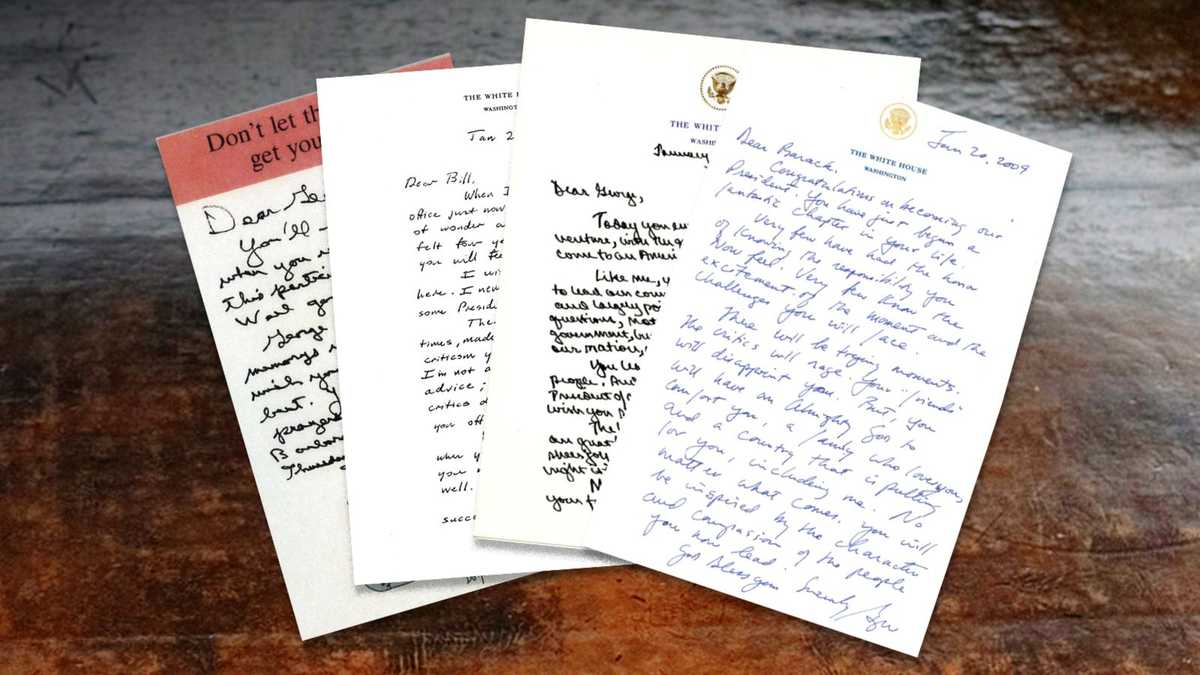 Don't let th
get you
Dear Ge
You'll
when you r
this partic
Wall gar
George
memorys
wish you
best.
prayer
Barbara
Thursday
THE WHITE HO
WASHINGT
Jan 2
Dear Bill,
When I
office just now
of wonder a
felt four ye
you will fee
I wis
here. I neve
some Presid
The
times, made
criticism y
I'm not a
advice;
critics d
you off
when y
your
well.
succ
THE WHIT
WASHI
January
Dear George,
Today you em
venture, with the g
come to an Ameri
Like me, y
to lead our coun
and largely po
questions, most
government, bu
our nation,
You lea
people.
President of
wish you
The
are great
shoes
right is
your f
THE WHITE HOUSE
WASHINGTON
Jan 20, 2009
Dear Barack,
Congratulations on becoming our
President. You have just began a
fantastic chapter in your life.
Very few have had the honor
of knowing the responsibility you
now feel. Very few know the
excitement of the moment and the
challenges you will face.
There will be trying moments.
The critics will rage. Your "friends"
will disappoint you. But, you
will have an Almighty God to
comfort you, a family who loves you,
and a country that is pulling
for you, including me. No
matter what comes, you will
be inspired by the character
and compassion of the people
you now lead.
God bless you.
Sincerely,
GW